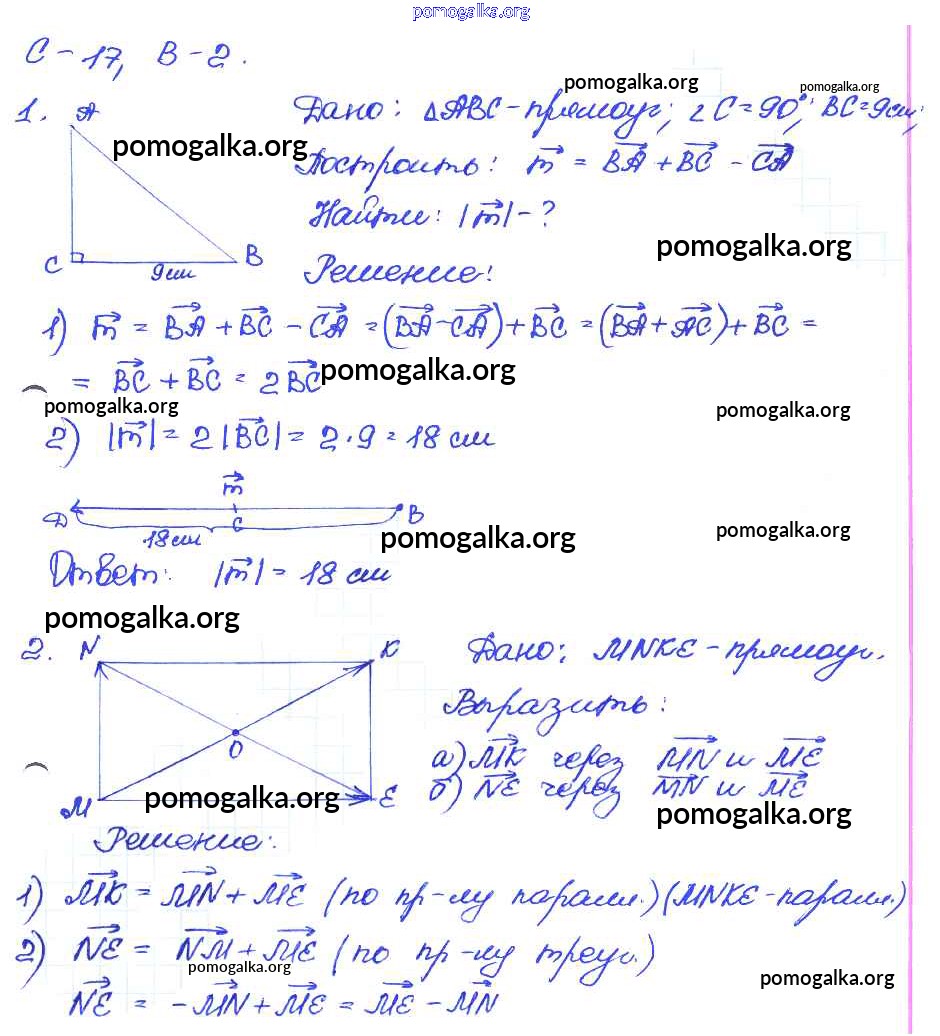 pomogalka.org
С-17, В-2.
pomogalka.org pomogalka.org
1. A Дано: △ABC-прямоуг; ∠C=90°; BC=9см;
pomogalka.org
Построить: m⃗ = BA⃗ + BC⃗ - CA⃗
Найти: |m⃗|-?
pomogalka.org
C B
9см
Решение:
1) m⃗ = BA⃗ + BC⃗ - CA⃗ = (BA⃗ - CA⃗) + BC⃗ = (BA⃗ + AC⃗) + BC⃗ =
= BC⃗ + BC⃗ = 2BC⃗
pomogalka.org
pomogalka.org pomogalka.org
2) |m⃗| = 2|BC⃗| = 2·9 = 18 см
m⃗
D C B
18см
pomogalka.org pomogalka.org
Ответ: |m⃗| = 18 см
pomogalka.org
2. N K Дано: MNKE-прямоуг.
Выразить:
O
а) MK⃗ через MN⃗ и ME⃗
б) NE⃗ через MN⃗ и ME⃗
M E
pomogalka.org pomogalka.org
Решение:
1) MK⃗ = MN⃗ + ME⃗ (по пр-лу паралл.) (MNKE-паралл.)
2) NE⃗ = NM⃗ + ME⃗ (по пр-лу треуг.)
pomogalka.org pomogalka.org
NE⃗ = -MN⃗ + ME⃗ = ME⃗ - MN⃗